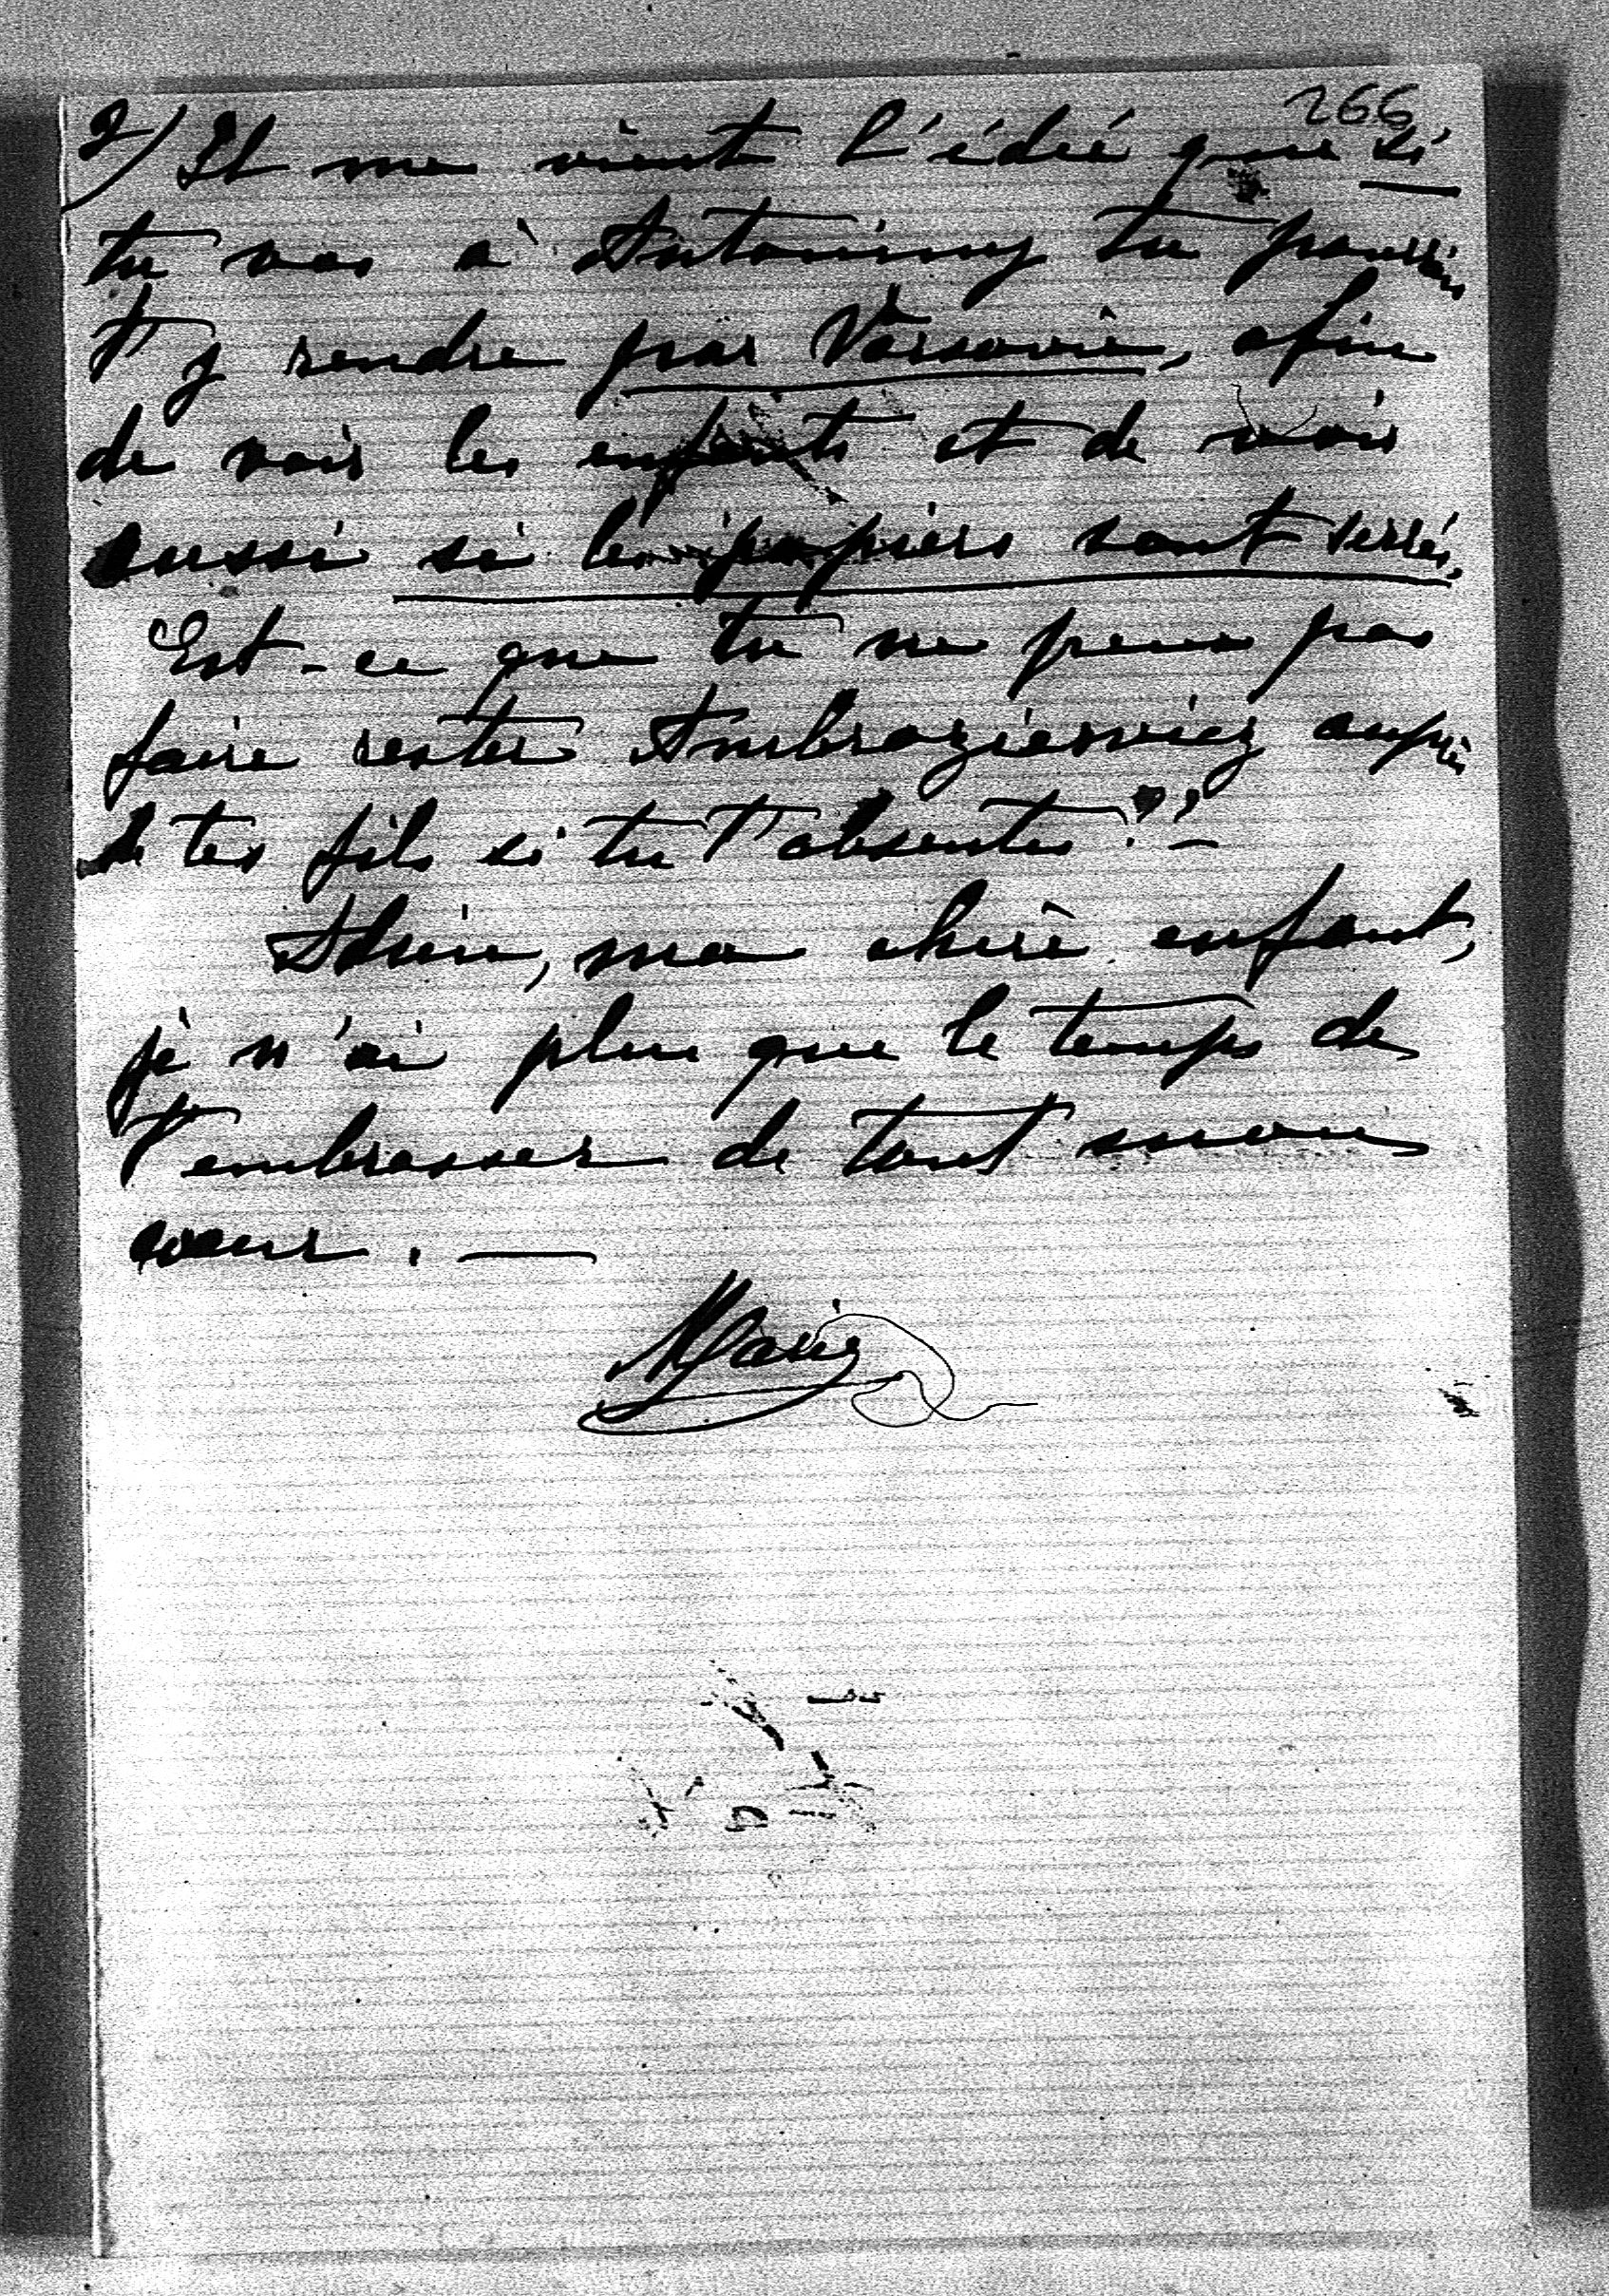 266
2/ Il me vient l'idée que si
tu vas à Antoniny tu pourrais
t'y rendre par Varsovie, afin
de voir les enfants et de voir
aussi si les papiers sont serrés.
Est-ce que tu ne peux pas
faire rester Ambroziewicz auprès
de tes fils si tu t'absentes?" —
Adieu, ma chère enfant,
je n'ai plus que le temps de
t'embrasser de tout mon
coeur. —
Marie